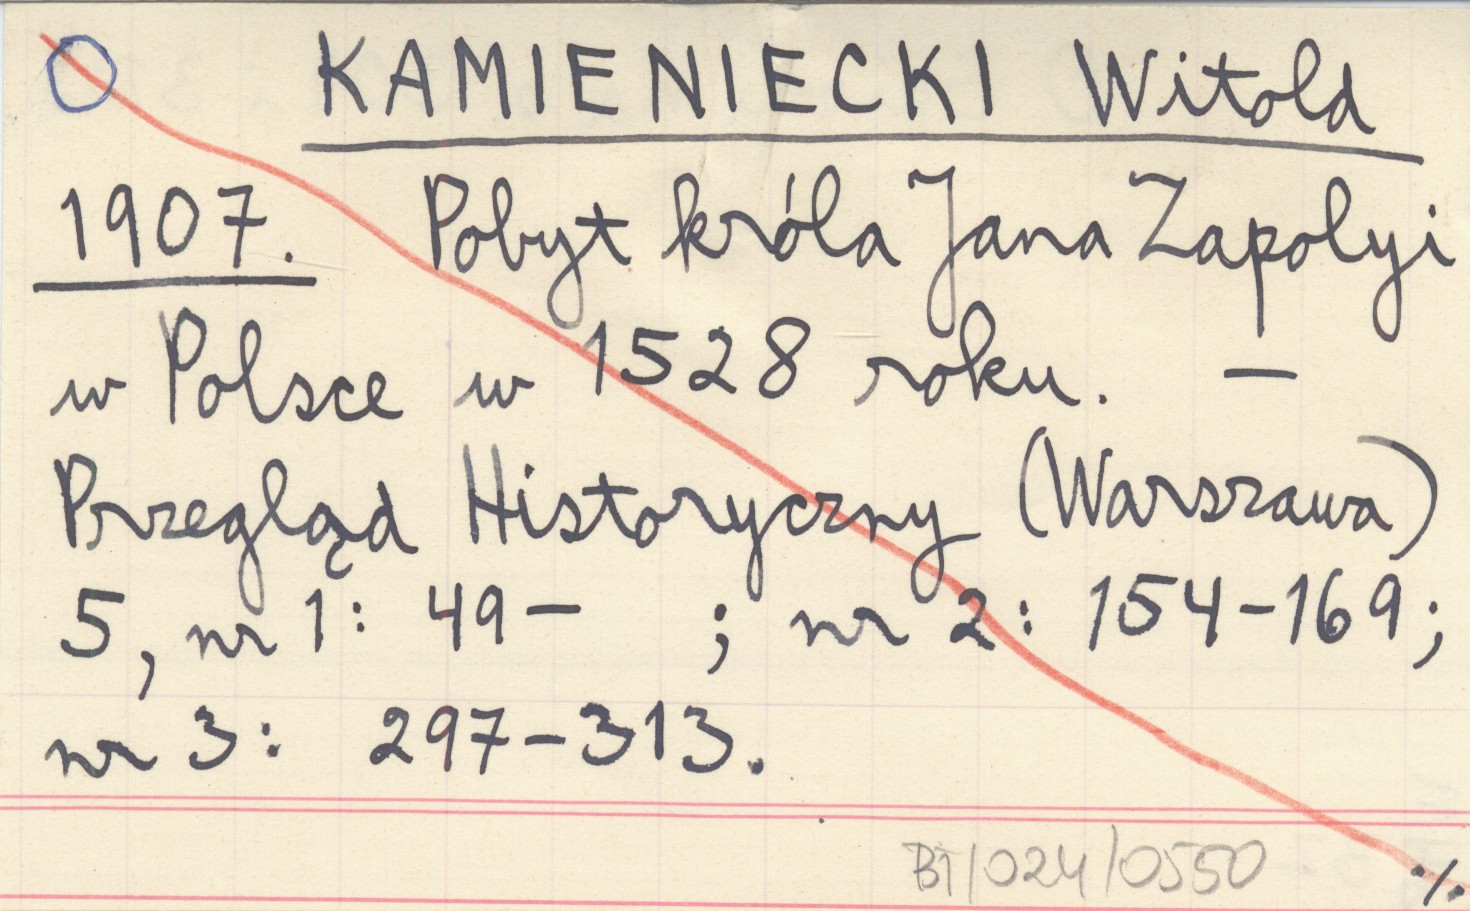 KAMIENIECKI Witold
1907. Pobyt króla Jana Zapolyi
w Polsce w 1528 roku. —
Przegląd Historyczny (Warszawa)
5, nr 1: 49— ; nr 2: 154-169;
nr 3: 297-313.
BT/024/0550
./.